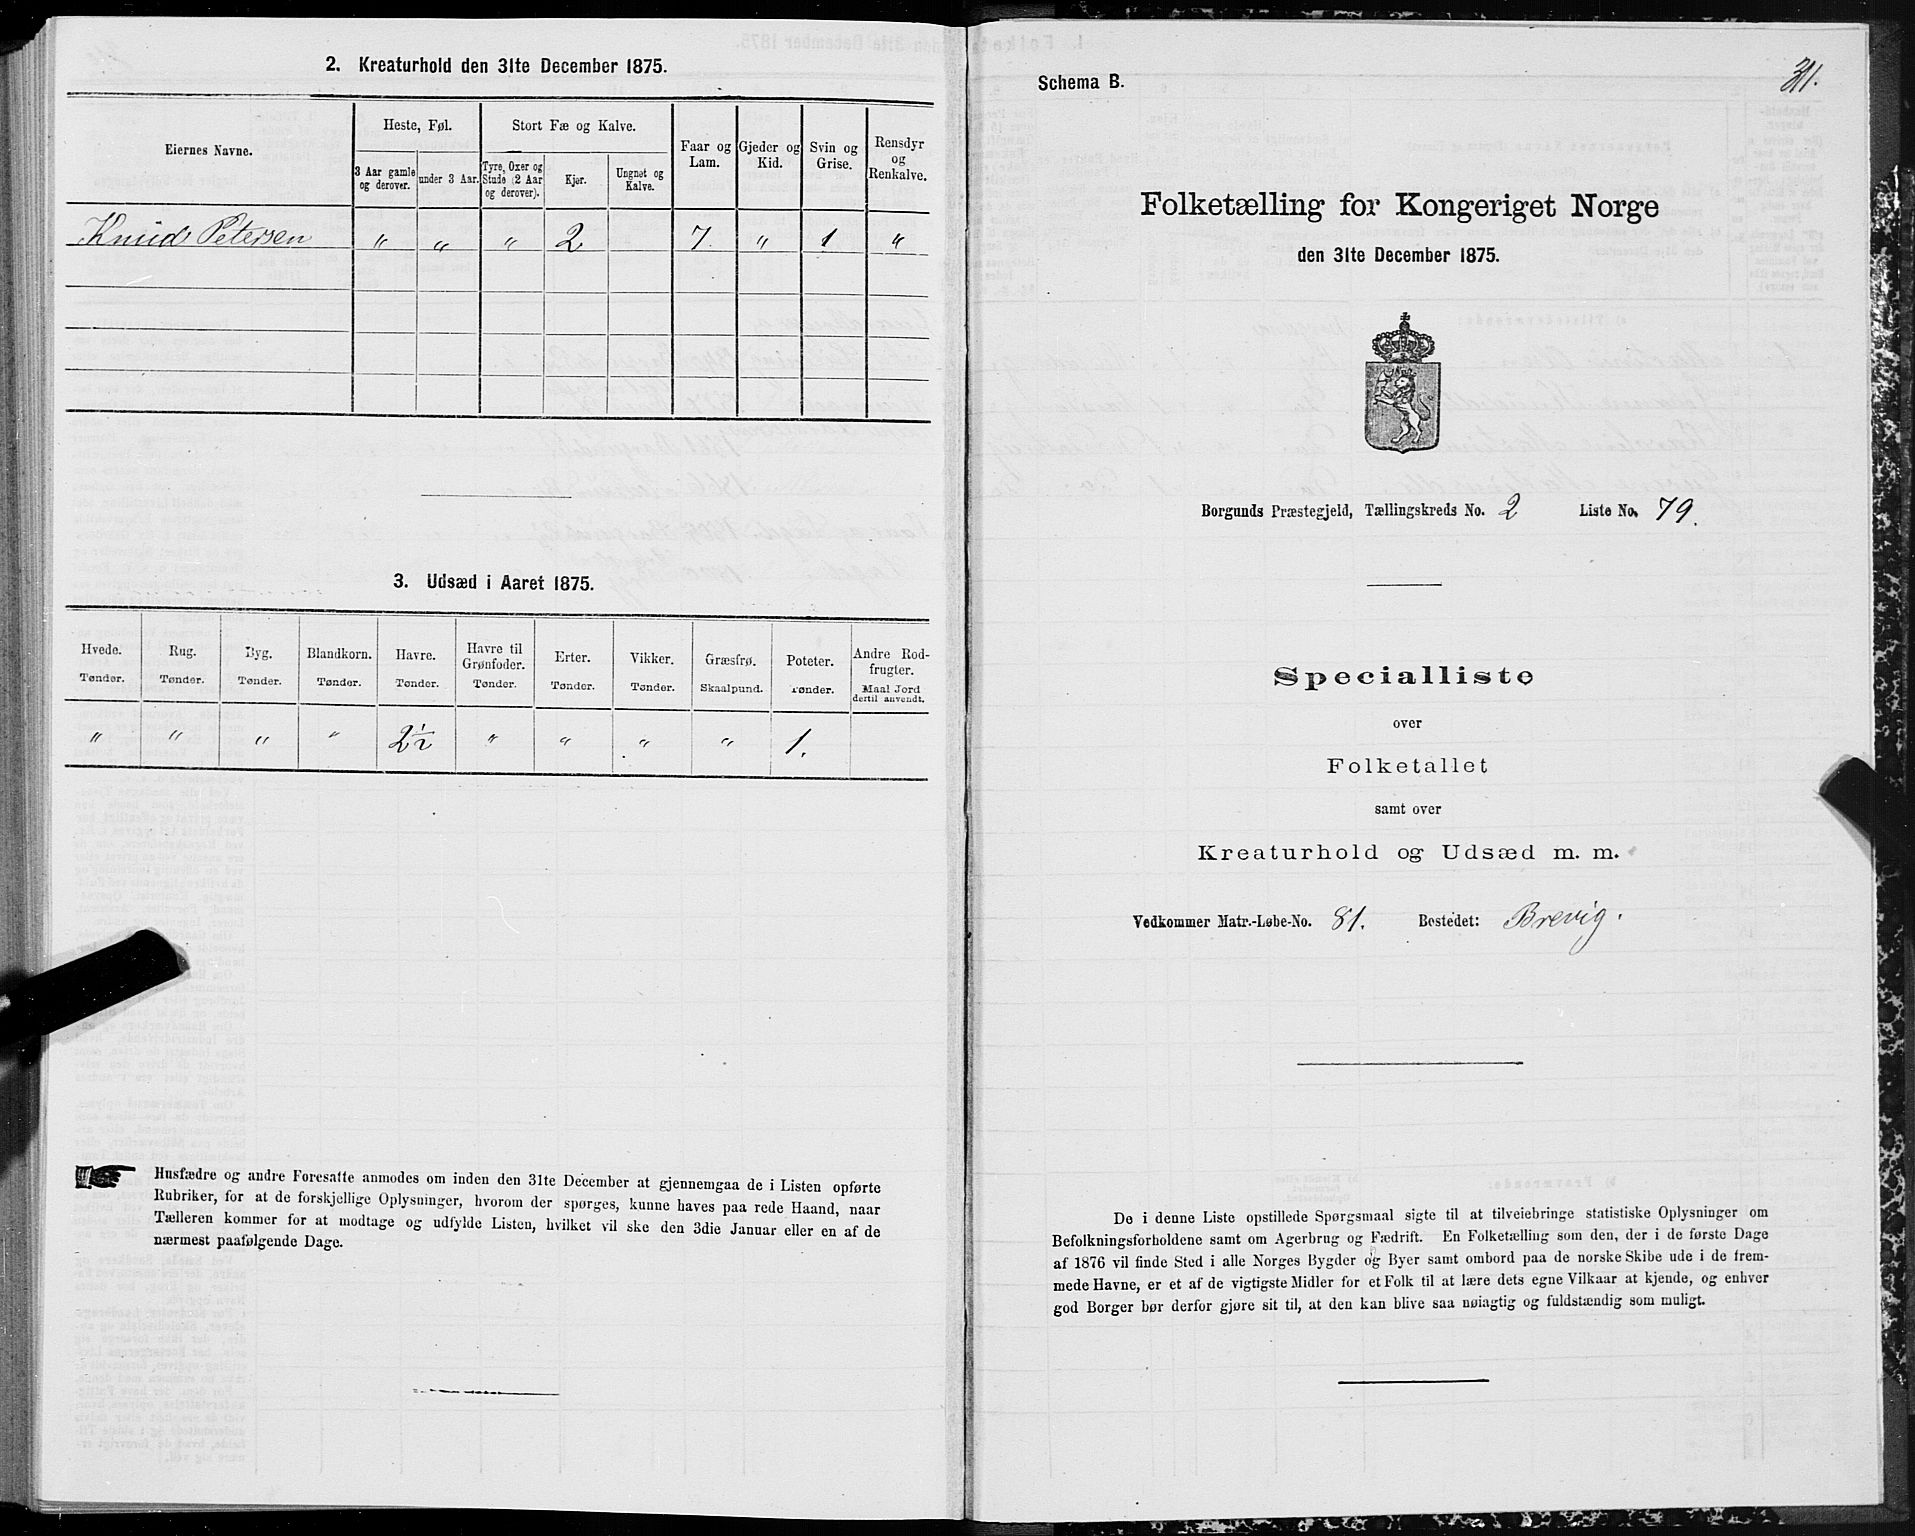 2. Kreaturhold den 31te December 1875.
Eiernes Navne.
Heste, Føl.
Stort Fæ og Kalve.
Faar og Lam.
Gjeder og Kid.
Svin og Grise.
Rensdyr og Renkalve.
3 Aar gamle og derover.
under 3 Aar.
Tyre, Oxer og Stude (2 Aar og derover).
Kjør.
Ungnøt og Kalve.
Knud Petersen " " " 2 7. " 1 "
3. Udsæd i Aaret 1875.
Hvede. Rug. Byg. Blandkorn. Havre. Havre til Grønfoder. Erter. Vikker. Græsfrø. Poteter. Andre Rodfrugter.
Tønder. Tønder. Tønder. Tønder. Tønder. Tønder. Tønder. Tønder. Skaalpund. Tønder. Maal Jord dertil anvendt.
" " " " 2½ " " " " 1.
Husfædre og andre Foresatte anmodes om inden den 31te December at gjennemgaa de i Listen opførte
Rubriker, for at de forskjellige Oplysninger, hvorom der spørges, kunne haves paa rede Haand, naar
Tælleren kommer for at modtage og udfylde Listen, hvilket vil ske den 3die Januar eller en af de
nærmest paafølgende Dage.
31.
Schema B.
Folketælling for Kongeriget Norge
den 31te December 1875.
Borgunds Præstegjeld, Tællingskreds No. 2 Liste No. 79.
Specialliste
over
Folketallet
samt over
Kreaturhold og Udsæd m. m.
Vedkommer Matr.-Løbe-No. 81. Bostedet: Brevig.
De i denne Liste opstillede Spørgsmaal sigte til at tilveiebringe statistiske Oplysninger om
Befolkningsforholdene samt om Agerbrug og Fædrift. En Folketælling som den, der i de første Dage
af 1876 vil finde Sted i alle Norges Bygder og Byer samt ombord paa de norske Skibe ude i de frem-
mede Havne, er et af de vigtigste Midler for et Folk til at lære dets egne Vilkaar at kjende, og enhver
god Borger bør derfor gjøre sit til, at den kan blive saa nøiagtig og fuldstændig som muligt.